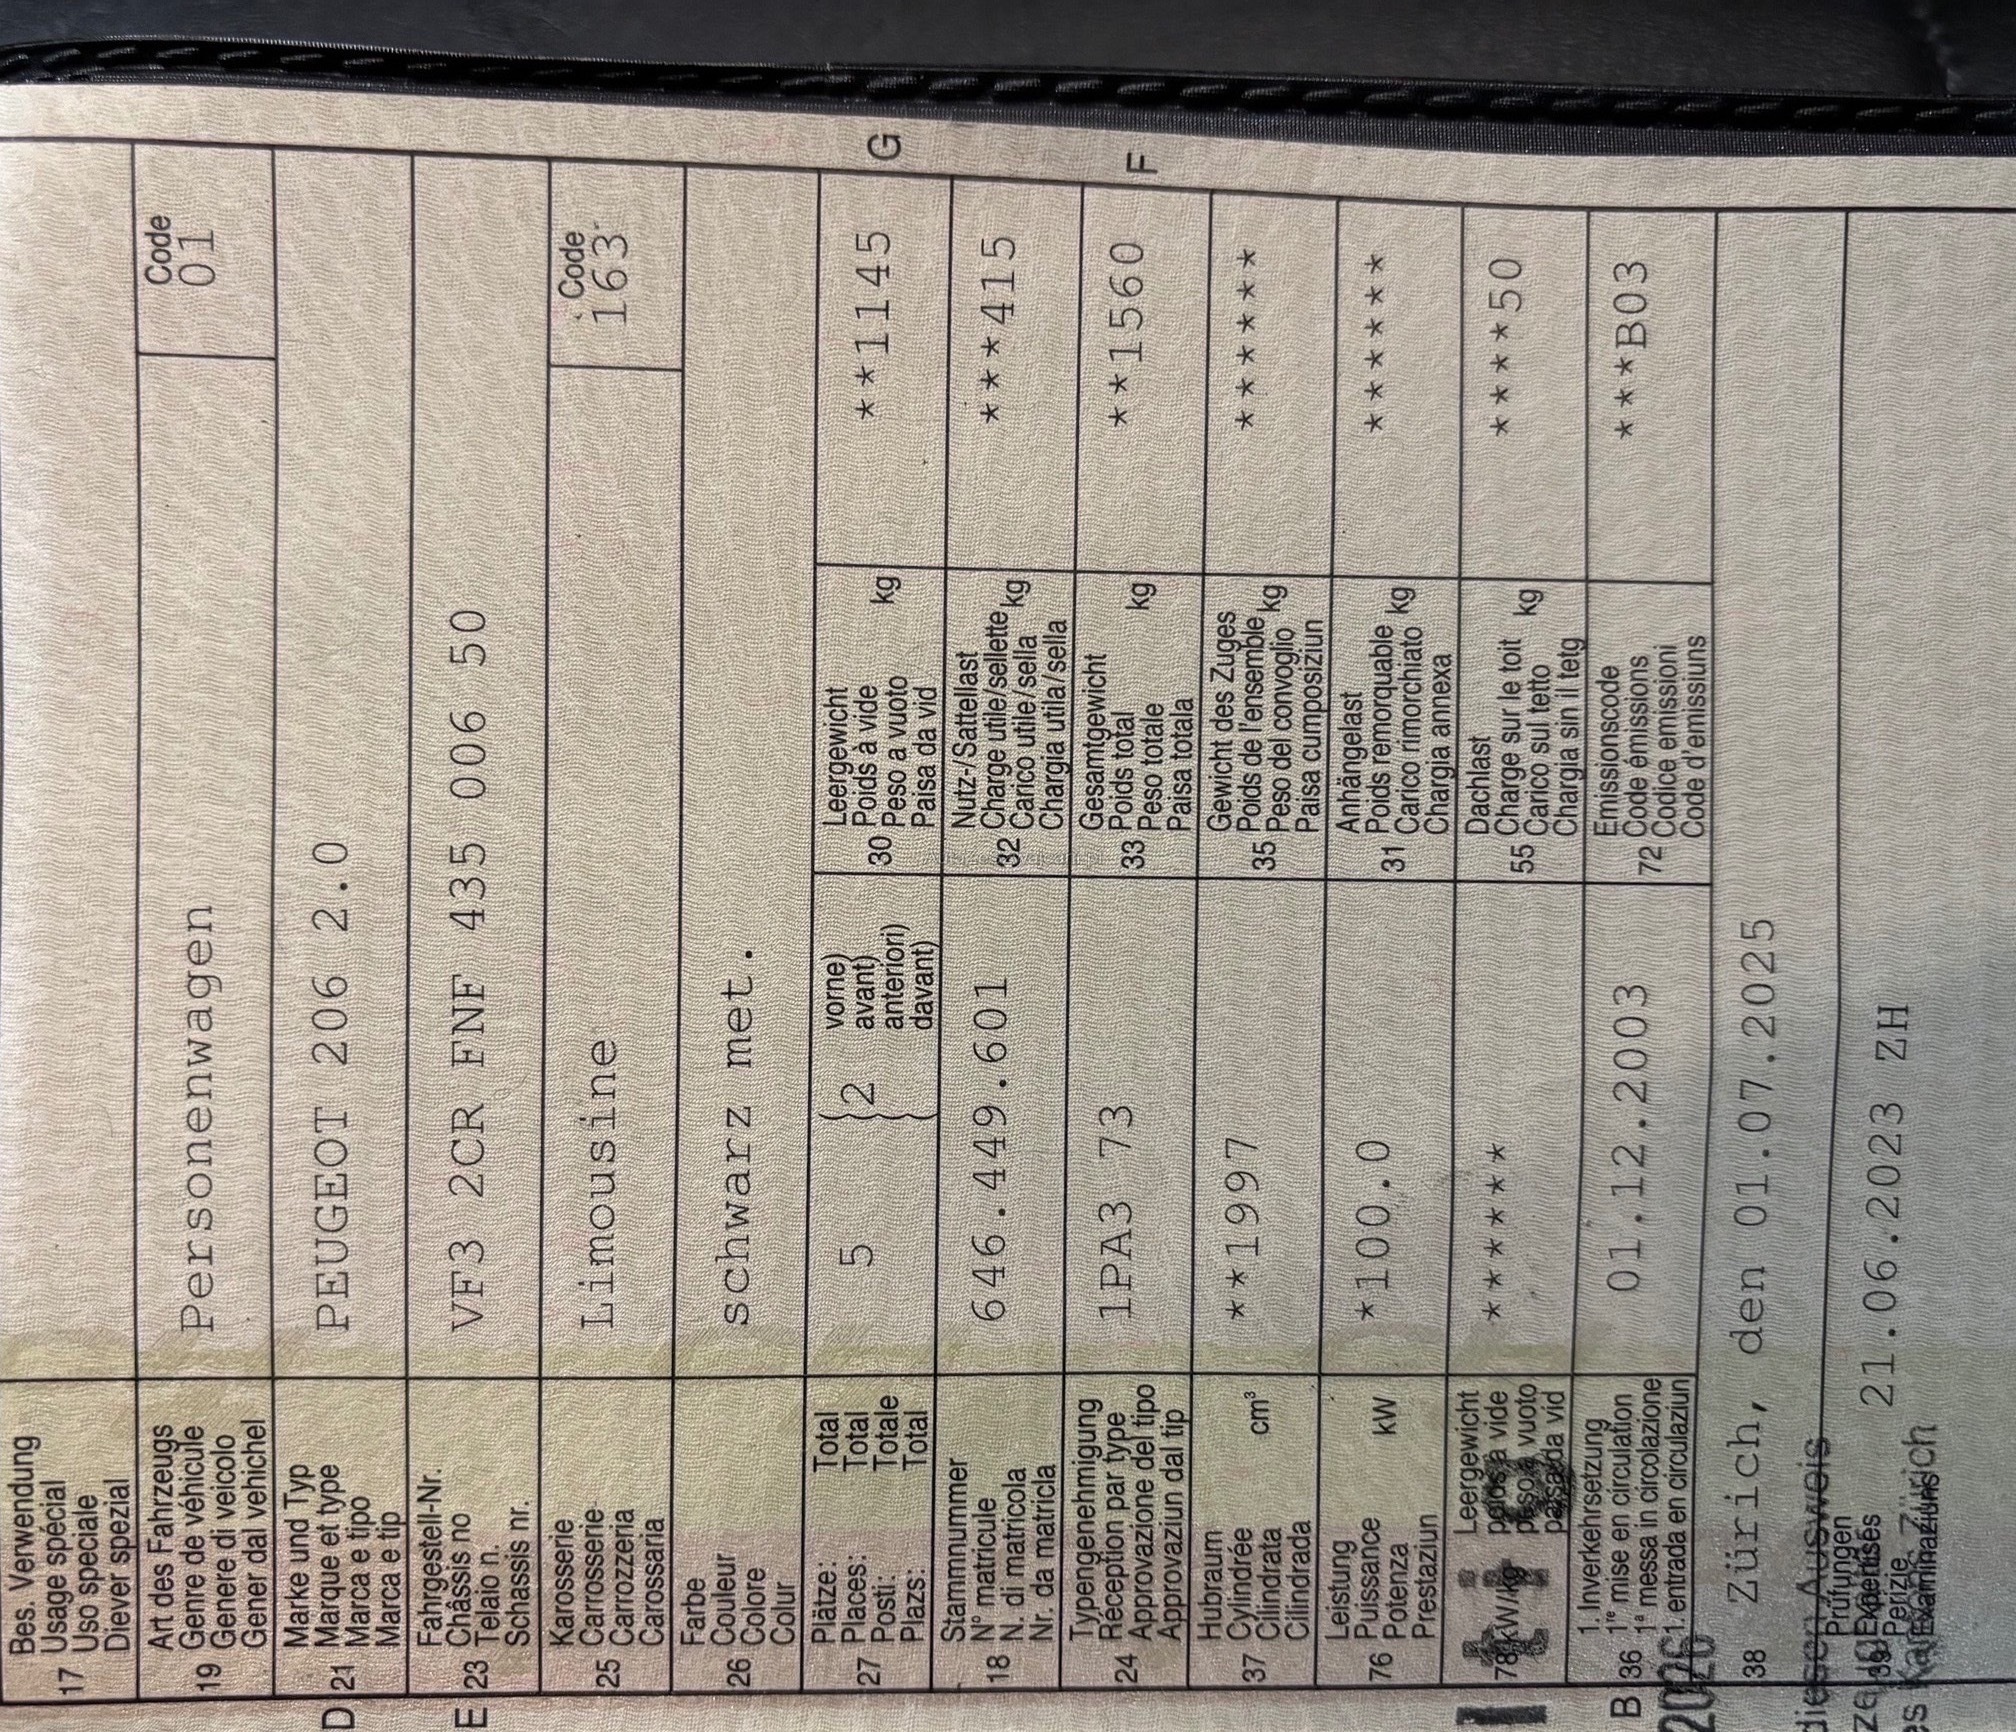 Bes. Verwendung
17 Usage spécial
Uso speciale
Diever spezial
Art des Fahrzeugs
19 Genre de véhicule
Genere di veicolo
Gener dal vehichel
Personenwagen
Code
01
Marke und Typ
D 21 Marque et type
Marca e tipo
Marca e tip
PEUGEOT 206 2.0
Fahrgestell-Nr.
E 23 Châssis no
Telaio n.
Schassis nr.
VF3 2CR FNF 435 006 50
Karosserie
25 Carrosserie
Carrozzeria
Carossaria
Limousine
Code
163
Farbe
26 Couleur
Colore
Colur
schwarz met.
Plätze: Total
27 Places: Total
Posti: Totale
Plazs: Total
5 2 vorne)
avant)
anteriori)
davant)
Leergewicht
30 Poids à vide kg
Peso a vuoto
Paisa da vid
**1145 G
Stammnummer
18 N° matricule
N. di matricola
Nr. da matricla
646.449.601
Nutz-/Sattellast
32 Charge utile/sellette kg
Carico utile/sella
Chargia utila/sella
***415
Typengenehmigung
24 Réception par type
Approvazione del tipo
Approvaziun dal tip
1PA3 73
Gesamtgewicht
33 Poids total kg
Peso totale
Paisa totala
**1560 F
Hubraum
37 Cylindrée cm³
Cilindrata
Cilindrada
**1997
Gewicht des Zuges
35 Poids de l'ensemble kg
Peso del convoglio
Paisa cumposiziun
*******
Leistung
76 Puissance kW
Potenza
Prestaziun
*100.0
Anhängelast
31 Poids remorquable kg
Carico rimorchiato
Chargia annexa
*******
78 kW/kg Leergewicht
poids à vide
peso a vuoto
paisa da vid
*******
Dachlast
55 Charge sur le toit kg
Carico sul tetto
Chargia sin il tetg
****50
1. Inverkehrsetzung
B 36 1re mise en circulation
1a messa in circolazione
1. entrada en circulaziun
01.12.2003
Emissionscode
72 Code émissions
Codice emissioni
Code d'emissiuns
***B03
2026
38 Zürich, den 01.07.2025
diesen Ausweis
Prüfungen
39 Expertises
Perizie
Examinaziuns
21.06.2023 ZH
Zürich